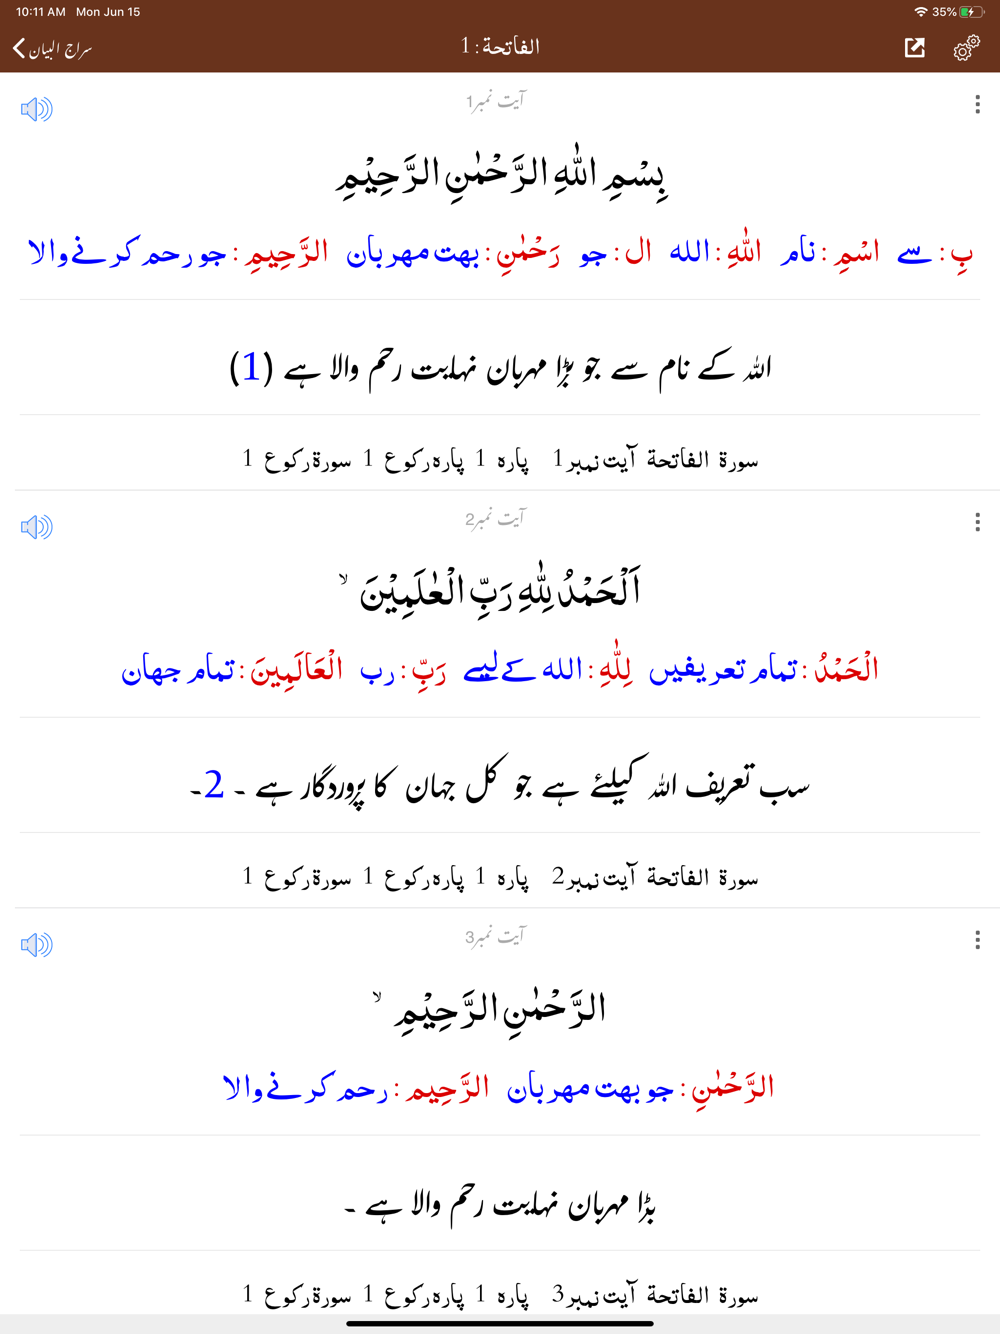 10:11 AM Mon Jun 15 35%
سراج البیان الفاتحة : 1
آیت نمبر1
بِسْمِ اللّٰهِ الرَّحْمٰنِ الرَّحِيْمِ
بِ : سے اسْمِ : نام اللّٰهِ : الله ال : جو رَحْمٰنِ : بهت مهربان الرَّحِيمِ : جو رحم كرنے والا
اللہ کے نام سے جو بڑا مہربان نہایت رحم والا ہے (1)
سورة الفاتحة آیت نمبر 1 پارہ 1 پارہ رکوع 1 سورة رکوع 1
آیت نمبر2
اَلْحَمْدُ لِلّٰهِ رَبِّ الْعٰلَمِيْنَ ۙ
الْحَمْدُ : تمام تعریفیں لِلّٰهِ : الله کے لیے رَبِّ : رب الْعَالَمِينَ : تمام جهان
سب تعریف اللہ کیلئے ہے جو کل جہان کا پروردگار ہے ۔ 2۔
سورة الفاتحة آیت نمبر 2 پارہ 1 پارہ رکوع 1 سورة رکوع 1
آیت نمبر3
الرَّحْمٰنِ الرَّحِيْمِ ۙ
الرَّحْمٰنِ : جو بهت مهربان الرَّحِيم : رحم كرنے والا
بڑا مہربان نہایت رحم والا ہے ۔
سورة الفاتحة آیت نمبر 3 پارہ 1 پارہ رکوع 1 سورة رکوع 1